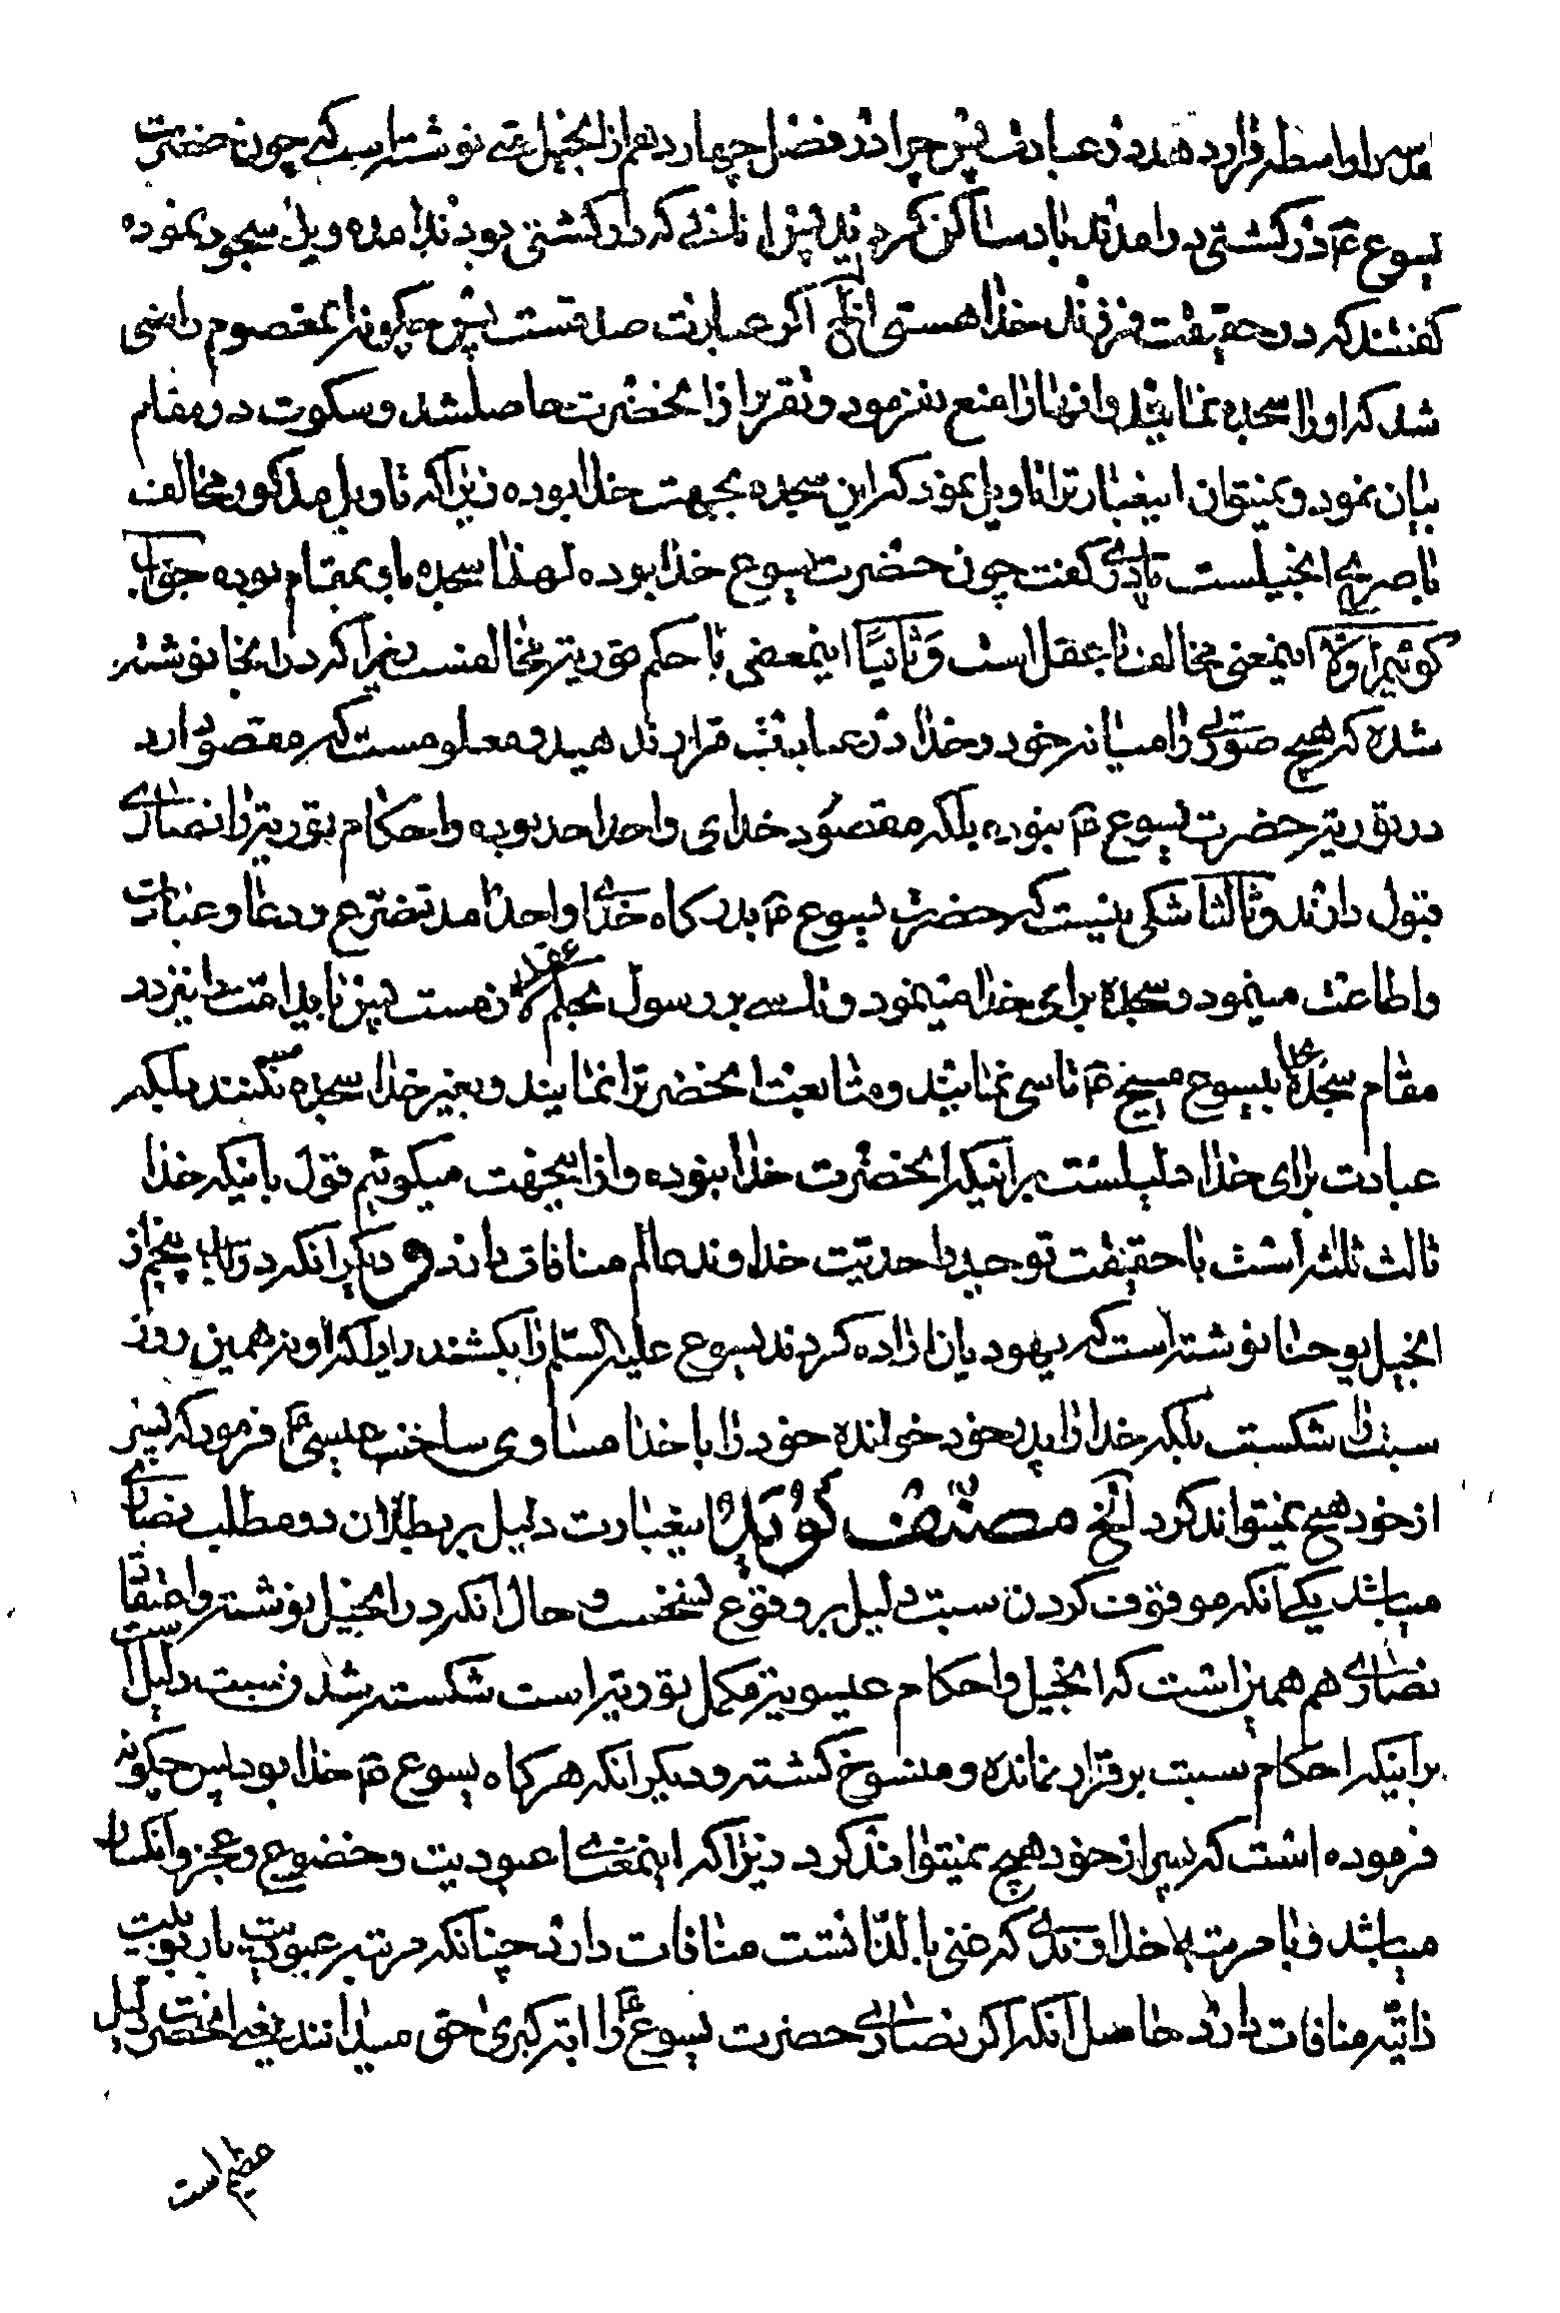 را واسطه قرار دهد در عبادت پس چرا در فصل چهاردهم از انجیل متی نوشته است که چون حضرت
یسوع ع م در کشتی در امدند باد ساکن کردید پس انانی که در کشتی بودند امده ویرا سجود نموده
کفتند که در حقیقت فرزند خدا هستی الخ اکر عبارت صدقست پس چکونه معصوم راضی
شد که او را سجده نمایند و انها را منع نفرمود و تقریر از انحضرت حاصلشد و سکوت در مقام
بیان نمود و نمیتوان اینعبارترا تاویل نمود که این سجده بجهت خدا بوده زیرا که تاویل مذکور مخالف
با صریح انجیلست پادری کفت چون حضرت یسوع خدا بوده لهذا سجده باو بمقام بوده جواب
کوئیم اولا اینمعنی مخالف با عقل است و ثانیا اینمعنی با حکم توریة مخالفست زیرا که در انجا نوشته
شده که هیچ صورتی را میانه خود و خدا در عبادت قرار ندهید و معلومست که مقصود از
در توریة حضرت یسوع ع م نبوده بلکه مقصود خدای واحد احد بوده و احکام توریة را نصاری
قبول دارند و ثالثا شکی نیست که حضرت یسوع ع م بدرکاه خدای واحد امد تضرع و دعا و عبادت
و اطاعت مینمود و سجده برای خدا مینمود و تاسی بر رسول بحکم عقل لازمست پس باید امت نیز در
مقام سجده بیسوع مسیح ع م تاسی نمایند و متابعت انحضرترا نمایند و بغیر خدا سجده نکنند بلکه
عبادت برای خدا دلیلست بر اینکه انحضرت خدا نبوده و از اینجهت میکوئیم قول باینکه خدا
ثالث ثلثه است با حقیقت توحید و احدیت خداوند عالم منافات دارد و دیکر انکه در باب پنجم از
انجیل یوحنا نوشته است که یهودیان اراده کردند یسوع علیه السلم را بکشند زیرا که او نه همین روز
سبت را شکست بلکه خدا را پدر خود خوانده خود را با خدا مساوی ساخت عیسی ع فرمود که پسر
از خود هیچ نمیتواند کرد الخ مصنف کوید اینعبارت دلیل بر بطلان دو مطلب نصاری
میباشد یکی انکه موقوف کردن سبت دلیل بر وقوع نسخست و حال انکه در انجیل نوشته و اعتقاد
نصاری هم همین است که انجیل و احکام عیسویة مکمل توریة است شکسته شدن سبت دلیل است
بر اینکه احکام سبت برقرار نمانده و منسوخ کشته و دیکر انکه هرکاه یسوع ع م خدا بود پس چکونه
فرموده است که پسر از خود هیچ نمیتواند کرد زیرا که اینمعنی عبودیت و خضوع و عجز و انکسار
میباشد و با مرتبه خداوندی که غنی بالذاتست منافات دارد چنانکه مرتبه عبودیت با ربوبیت
ذاتیه منافات دارد حاصل انکه اکر نصاری حضرت یسوع ع را ایة کبری حق میدانند یعنی انحضرت دلیل
عظیم است